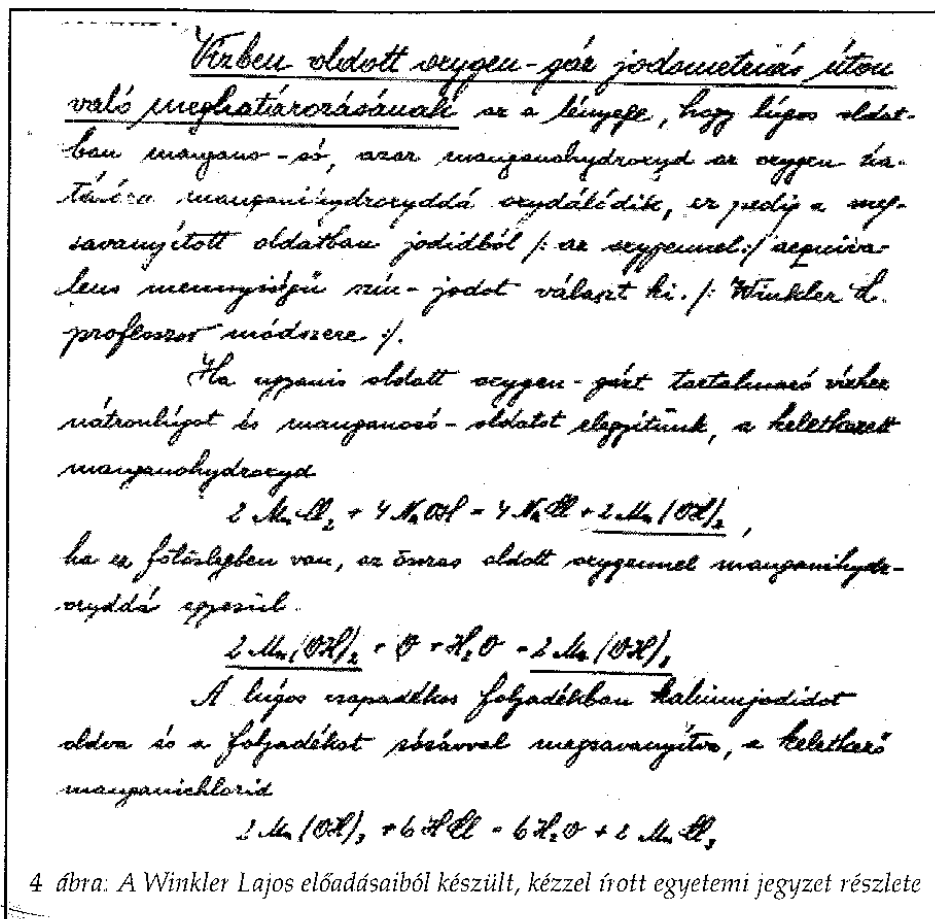 Vízben oldott oxygen-gáz jodometriás úton
való meghatározásának az a lényege, hogy lúgos oldat-
ban mangano-só, azaz manganohydroxyd az oxygen ha-
tására manganihydroxyddá oxydálódik, ez pedig a meg-
savanyított oldatban jodidból /: az oxygennel :/ aequiva-
lens mennyiségű szín-jodot választ ki. /: Winkler L.
professzor módszere :/.
Ha ugyanis oldott oxygen-gázt tartalmazó vízhez
nátronlúgot és manganosó-oldatot elegyítünk, a keletkezett
manganohydroxyd
2 MnCl₂ + 4 NaOH = 4 NaCl + 2 Mn(OH)₂,
ha ez fölöslegben van, az összes oldott oxygennel manganihydr-
oxyddá egyesül.
2 Mn(OH)₂ + O + H₂O = 2 Mn(OH)₃
A lúgos csapadékos folyadékban kaliumjodidot
oldva és a folyadékot sósavval megsavanyítva, a keletkező
manganichlorid
2 Mn(OH)₃ + 6 HCl = 6 H₂O + 2 MnCl₃
4 ábra: A Winkler Lajos előadásaiból készült, kézzel írott egyetemi jegyzet részlete